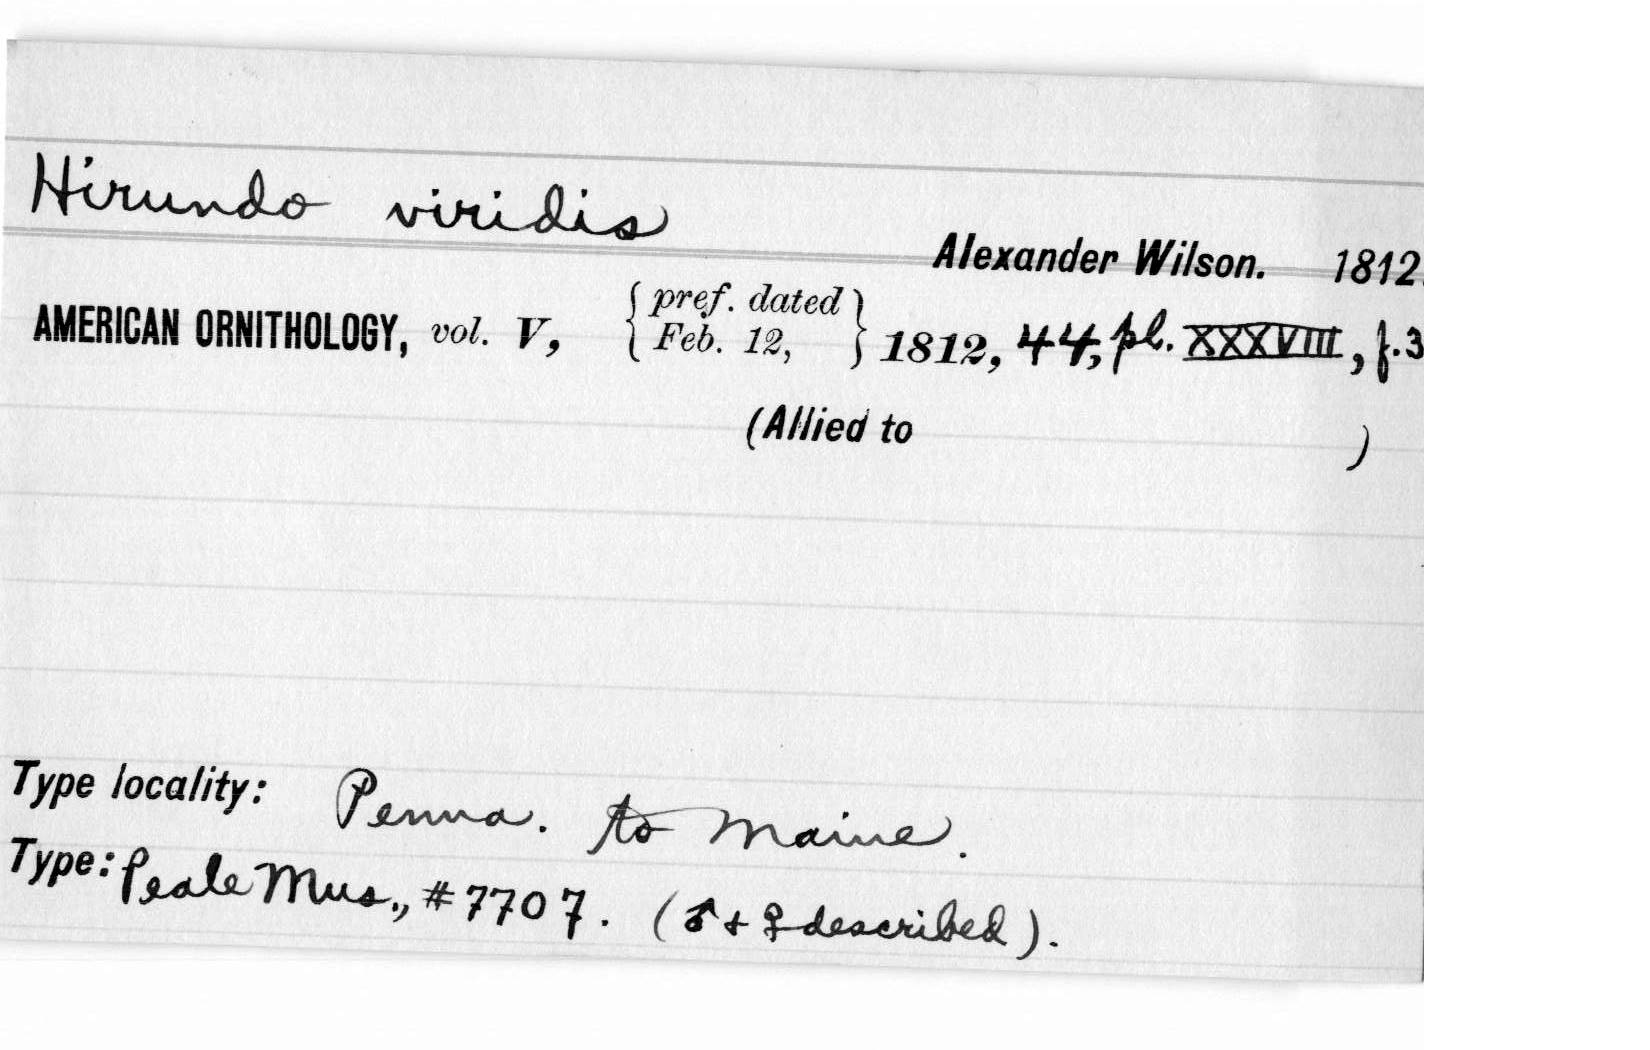 Hirundo viridis
Alexander Wilson. 1812.
AMERICAN ORNITHOLOGY, vol. V, { pref. dated Feb. 12, } 1812, 44, pl. XXXVIII, f. 3
(Allied to )
Type locality: Penna. to Maine.
Type: Peale Mus., #7707. (♂ + ♀ described).